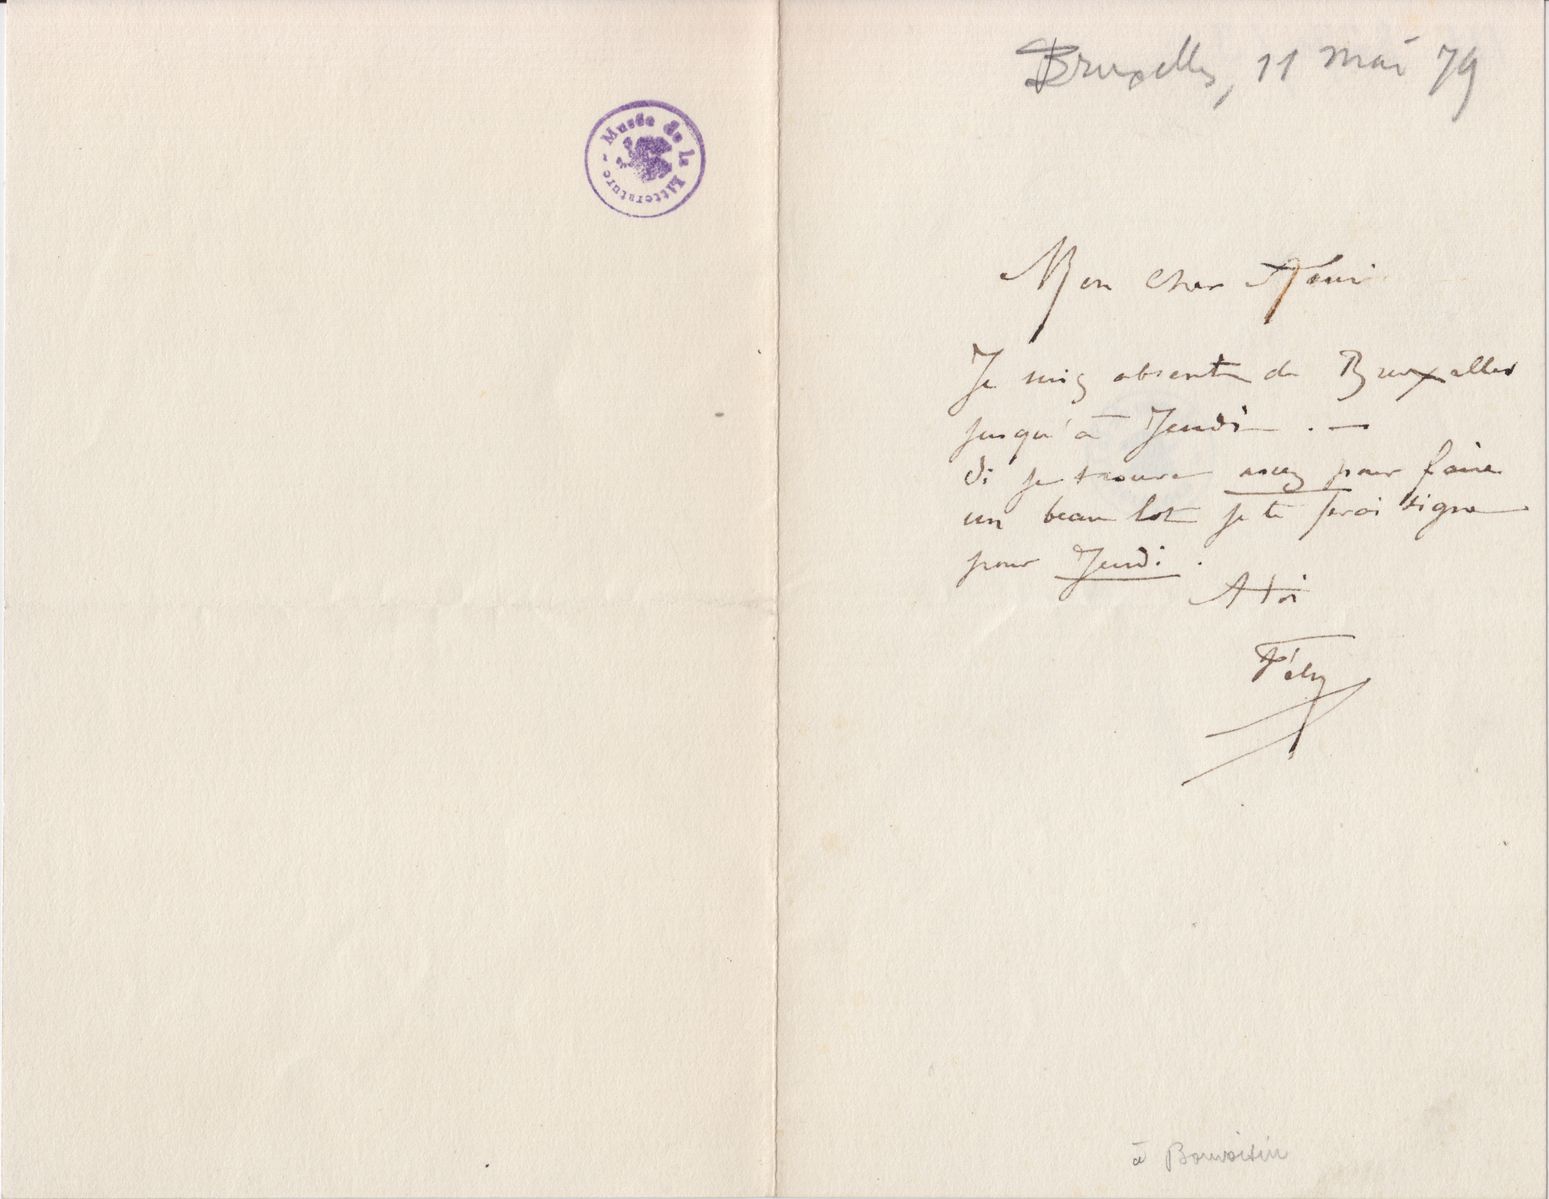 Musée de la Littérature -
Bruxelles, 11 mai 79
Mon cher
Je suis absent de Bruxelles
jusqu'à Jeudi . —
Si je trouve assez pour faire
un beau lot je te ferai signe
pour Jeudi .
A toi
Fély
à Bonvoisin